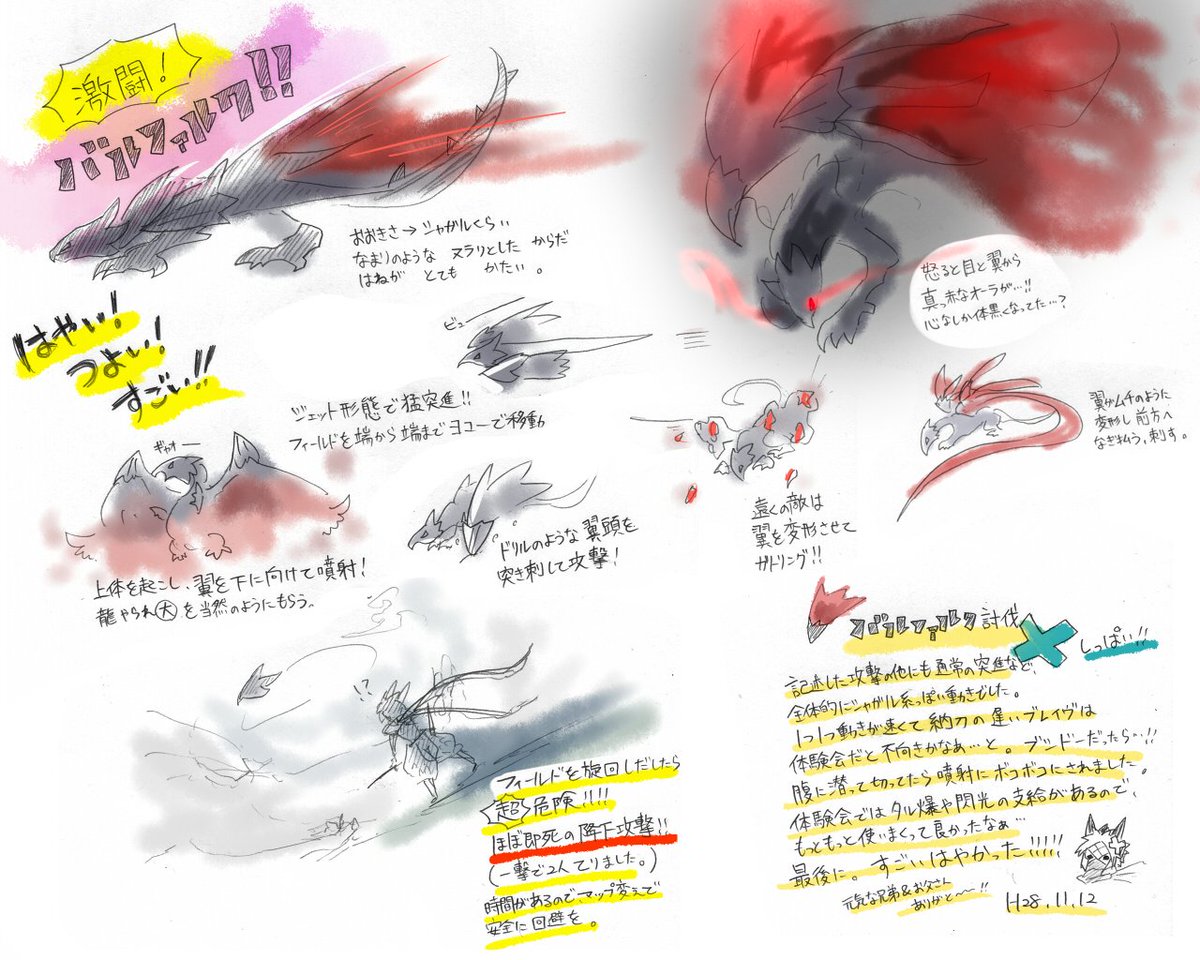 激闘!
バルファルク!!
おおきさ→ジャガルくらい
なまりのような ヌラリとした からだ
はねが とても かたい。
怒ると目と翼から
真っ赤なオーラが…!!
心なしか体黒くなってた…?
はやい!
つよい!
すごい!!
ビュー
ジェット形態で猛突進!!
フィールドを端から端までヨユーで移動
翼がムチのように
変形し前方へ
なぎ払う,刺す。
ギャオー
上体を起こし、翼を下に向けて噴射!
龍やられ大を当然のようにもらう。
ドリルのような翼頭を
突き刺して攻撃!
遠くの敵は
翼を変形させて
ガトリング!!
!?
フィールドを旋回しだしたら
超危険!!!!
ほぼ即死の降下攻撃!!
(一撃で2人てりました。)
時間があるので、マップ変えで
安全に回避を。
バルファルク討伐
しっぱい!!
記述した攻撃の他にも通常の突進など、
全体的にジャガル系っぽい動きでした。
1つ1つ動きが速くて納刀の遅いブレイヴは
体験会だと不向きかなぁ…と。ブシドーだったら…!!
腹に潜って切ってたら噴射にボコボコにされました。
体験会ではタル爆や閃光の支給があるので、
もっともっと使いまくって良かったなぁ…
最後に。すごいはやかった!!!!!
元気な兄弟&お父さん
ありがと~~!!
H28.11.12